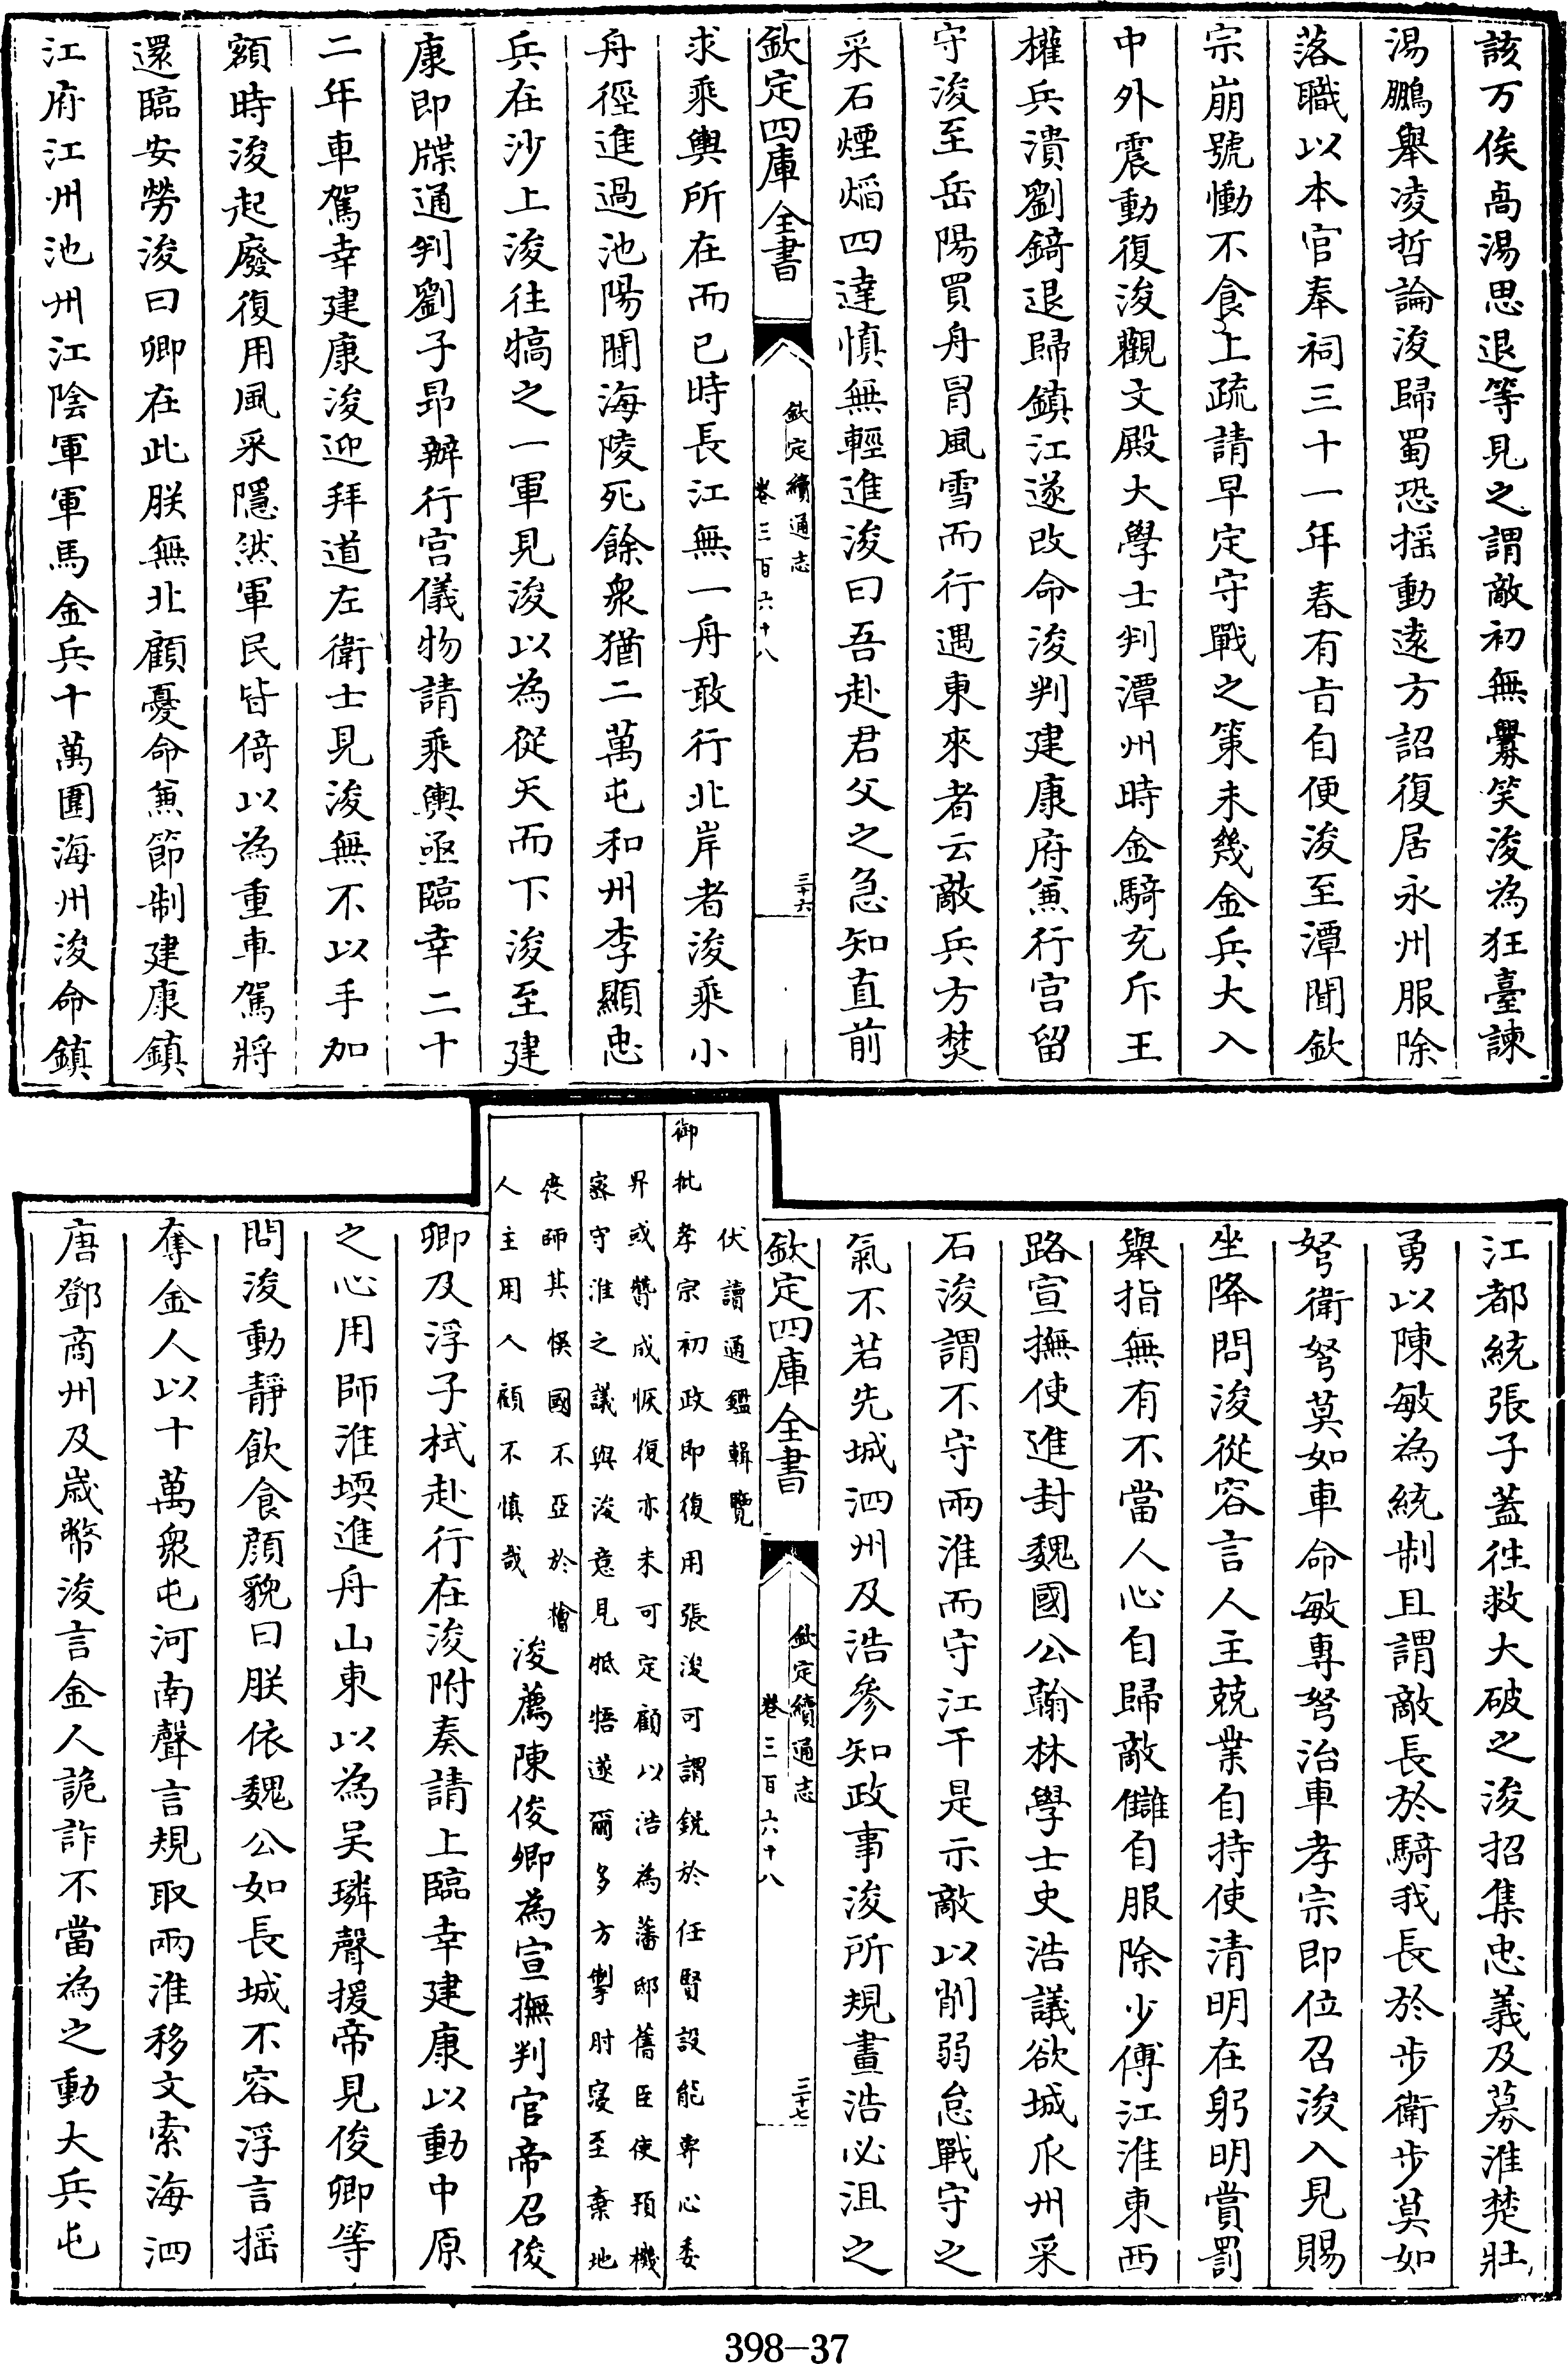 該万俟卨湯思退等見之謂敵初無釁笑浚為狂臺諫
湯鵬舉凌哲論浚歸蜀恐揺動逺方詔復居永州服除
落職以本官奉祠三十一年春有旨自便浚至潭聞欽
宗崩號慟不食上疏請早定守戰之策未幾金兵大入
中外震動復浚觀文殿大學士判潭州時金騎充斥王
權兵潰劉錡退歸鎮江遂改命浚判建康府兼行宫留
守浚至岳陽買舟冒風雪而行遇東來者云敵兵方焚
采石煙熖四達慎無輕進浚曰吾赴君父之急知直前
欽定四庫全書
欽定續通志
卷三百六十八
三十六
求乘輿所在而已時長江無一舟敢行北岸者浚乘小
舟徑進過池陽聞海陵死餘衆猶二萬屯和州李顯忠
兵在沙上浚往犒之一軍見浚以為從天而下浚至建
康即牒通判劉子昂辦行宫儀物請乘輿亟臨幸二十
二年車駕幸建康浚迎拜道左衛士見浚無不以手加
額時浚起廢復用風采隱然軍民皆倚以為重車駕將
還臨安勞浚曰卿在此朕無北顧憂命兼節制建康鎮
江府江州池州江陰軍軍馬金兵十萬圍海州浚命鎮
江都統張子蓋往救大破之浚招集忠義及募淮楚壯
勇以陳敏為統制且謂敵長於騎我長於步衛步莫如
弩衛弩莫如車命敏專弩治車孝宗即位召浚入見賜
坐降問浚從容言人主兢業自持使清明在躬明賞罰
舉指無有不當人心自歸敵讎自服除少傅江淮東西
路宣撫使進封魏國公翰林學士史浩議欲城瓜州采
石浚謂不守兩淮而守江干是示敵以削弱怠戰守之
氣不若先城泗州及浩參知政事浚所規畫浩必沮之
欽定四庫全書
欽定續通志
卷三百六十八
三十七
伏讀通鑑輯覽
御批孝宗初政即復用張浚可謂銳於任賢設能專心委
畀或贊成恢復亦未可定顧以浩為藩邸舊臣使預機
密守淮之議與浚意見牴牾遂爾多方掣肘寖至棄地
喪師其悞國不亞於檜
人主用人顧不慎哉
浚薦陳俊卿為宣撫判官帝召俊
卿及浮子栻赴行在浚附奏請上臨幸建康以動中原
之心用師淮堧進舟山東以為吴璘聲援帝見俊卿等
問浚動靜飲食顔貌曰朕依魏公如長城不容浮言揺
奪金人以十萬衆屯河南聲言規取兩淮移文索海泗
唐鄧商州及歳幣浚言金人詭詐不當為之動大兵屯
398-37